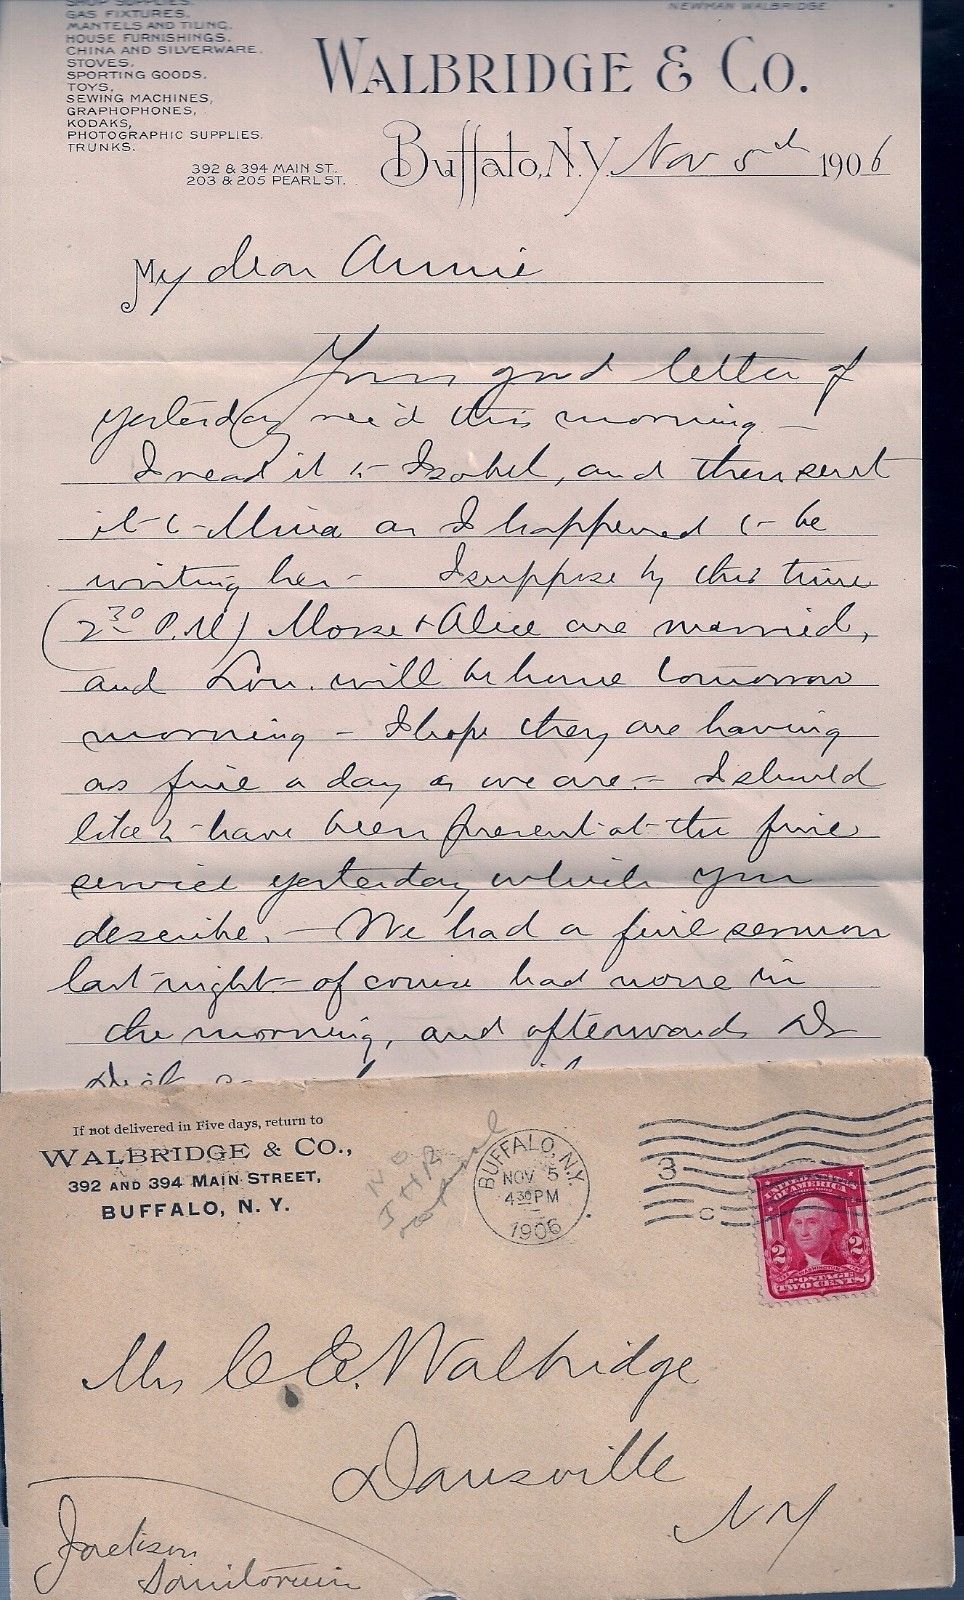 SHOP SUPPLIES.
GAS FIXTURES,
MANTELS AND TILING,
HOUSE FURNISHINGS,
CHINA AND SILVERWARE,
STOVES,
SPORTING GOODS,
TOYS,
SEWING MACHINES,
GRAPHOPHONES,
KODAKS,
PHOTOGRAPHIC SUPPLIES.
TRUNKS.
NEWMAN WALBRIDGE.
WALBRIDGE & CO.
392 & 394 MAIN ST.
203 & 205 PEARL ST.
Buffalo, N.Y. Nov 5th 1906
My dear Annie
Your good letter of
yesterday rec'd this morning -
I read it to Isobel, and then sent
it to Mina as I happened to be
writing her - I suppose by this time
(2 30 P.M) Morse & Alice are married,
and Lou. will be home tomorrow
morning - I hope they are having
as fine a day as we are - I should
like to have been present at the fine
service yesterday which you
describe. - We had a fine sermon
last night - of course had none in
the morning, and afterwards Dr
If not delivered in Five days, return to
WALBRIDGE & CO.,
392 AND 394 MAIN STREET,
BUFFALO, N. Y.
BUFFALO, N.Y.
NOV 5
4 30 PM
1906
3
C
UNITED STATES
OF AMERICA
2 2
POSTAGE
TWO CENTS
Mrs C E. Walbridge
Dansville
NY
Jackson
Sanitorium